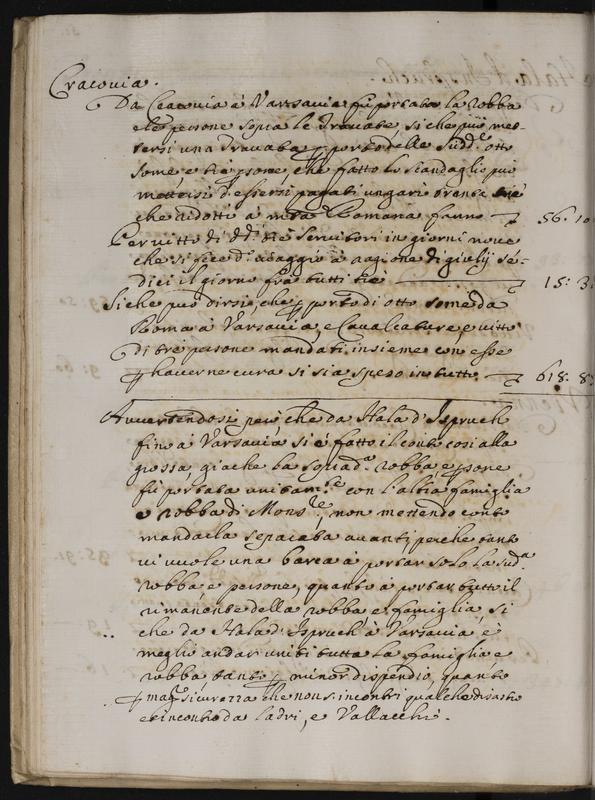 Cracovia.
Da Cracovia à Varsavia fù portata la robba
e le persone sopra le Travate, si che può met-
tersi una Travata p porto delle sudd.e otto
some, e trè psone, che fatto lo scandaglio può
mettersi d'essersi pagati ungari trenta trè
che ridotti a m.ta Romana fanno — 56: 10
Per vitto di dd.i trè servitori in giorni nove
che si fece di viaggio à ragione di giulij se-
dici il giorno frà tutti trè — 15: 3
Si che può dirsi, che p porto di otto some da
Roma à Varsavia, e Cavalcature, e vitto
di trè persone mandati insieme con esse
p haverne cura si sia speso in tutto — 618: 8
Avvertendosi però, che da Hala d'Ispruch
fino à Varsavia si è fatto il conto così alla
grossa, giache la squad.a robba, e psone
fù portata unitam.te con l'altra famiglia
e robba di Mons.re, non mettendo conto
mandarla separata avanti, perche tanto
vi vuole una barca à portar solo la sud.a
robba e persone, quanto à portar tutto il
rimanente della robba e famiglia, si
che da Hala d'Ispruch à Varsavia è
meglio andar uniti tutta la famiglia e
robba tanto p minor dispendio, quanto
p mag.r sicurezza che non s'incontri qualche disastro
e rincontro da ladri, e Vallacchi.